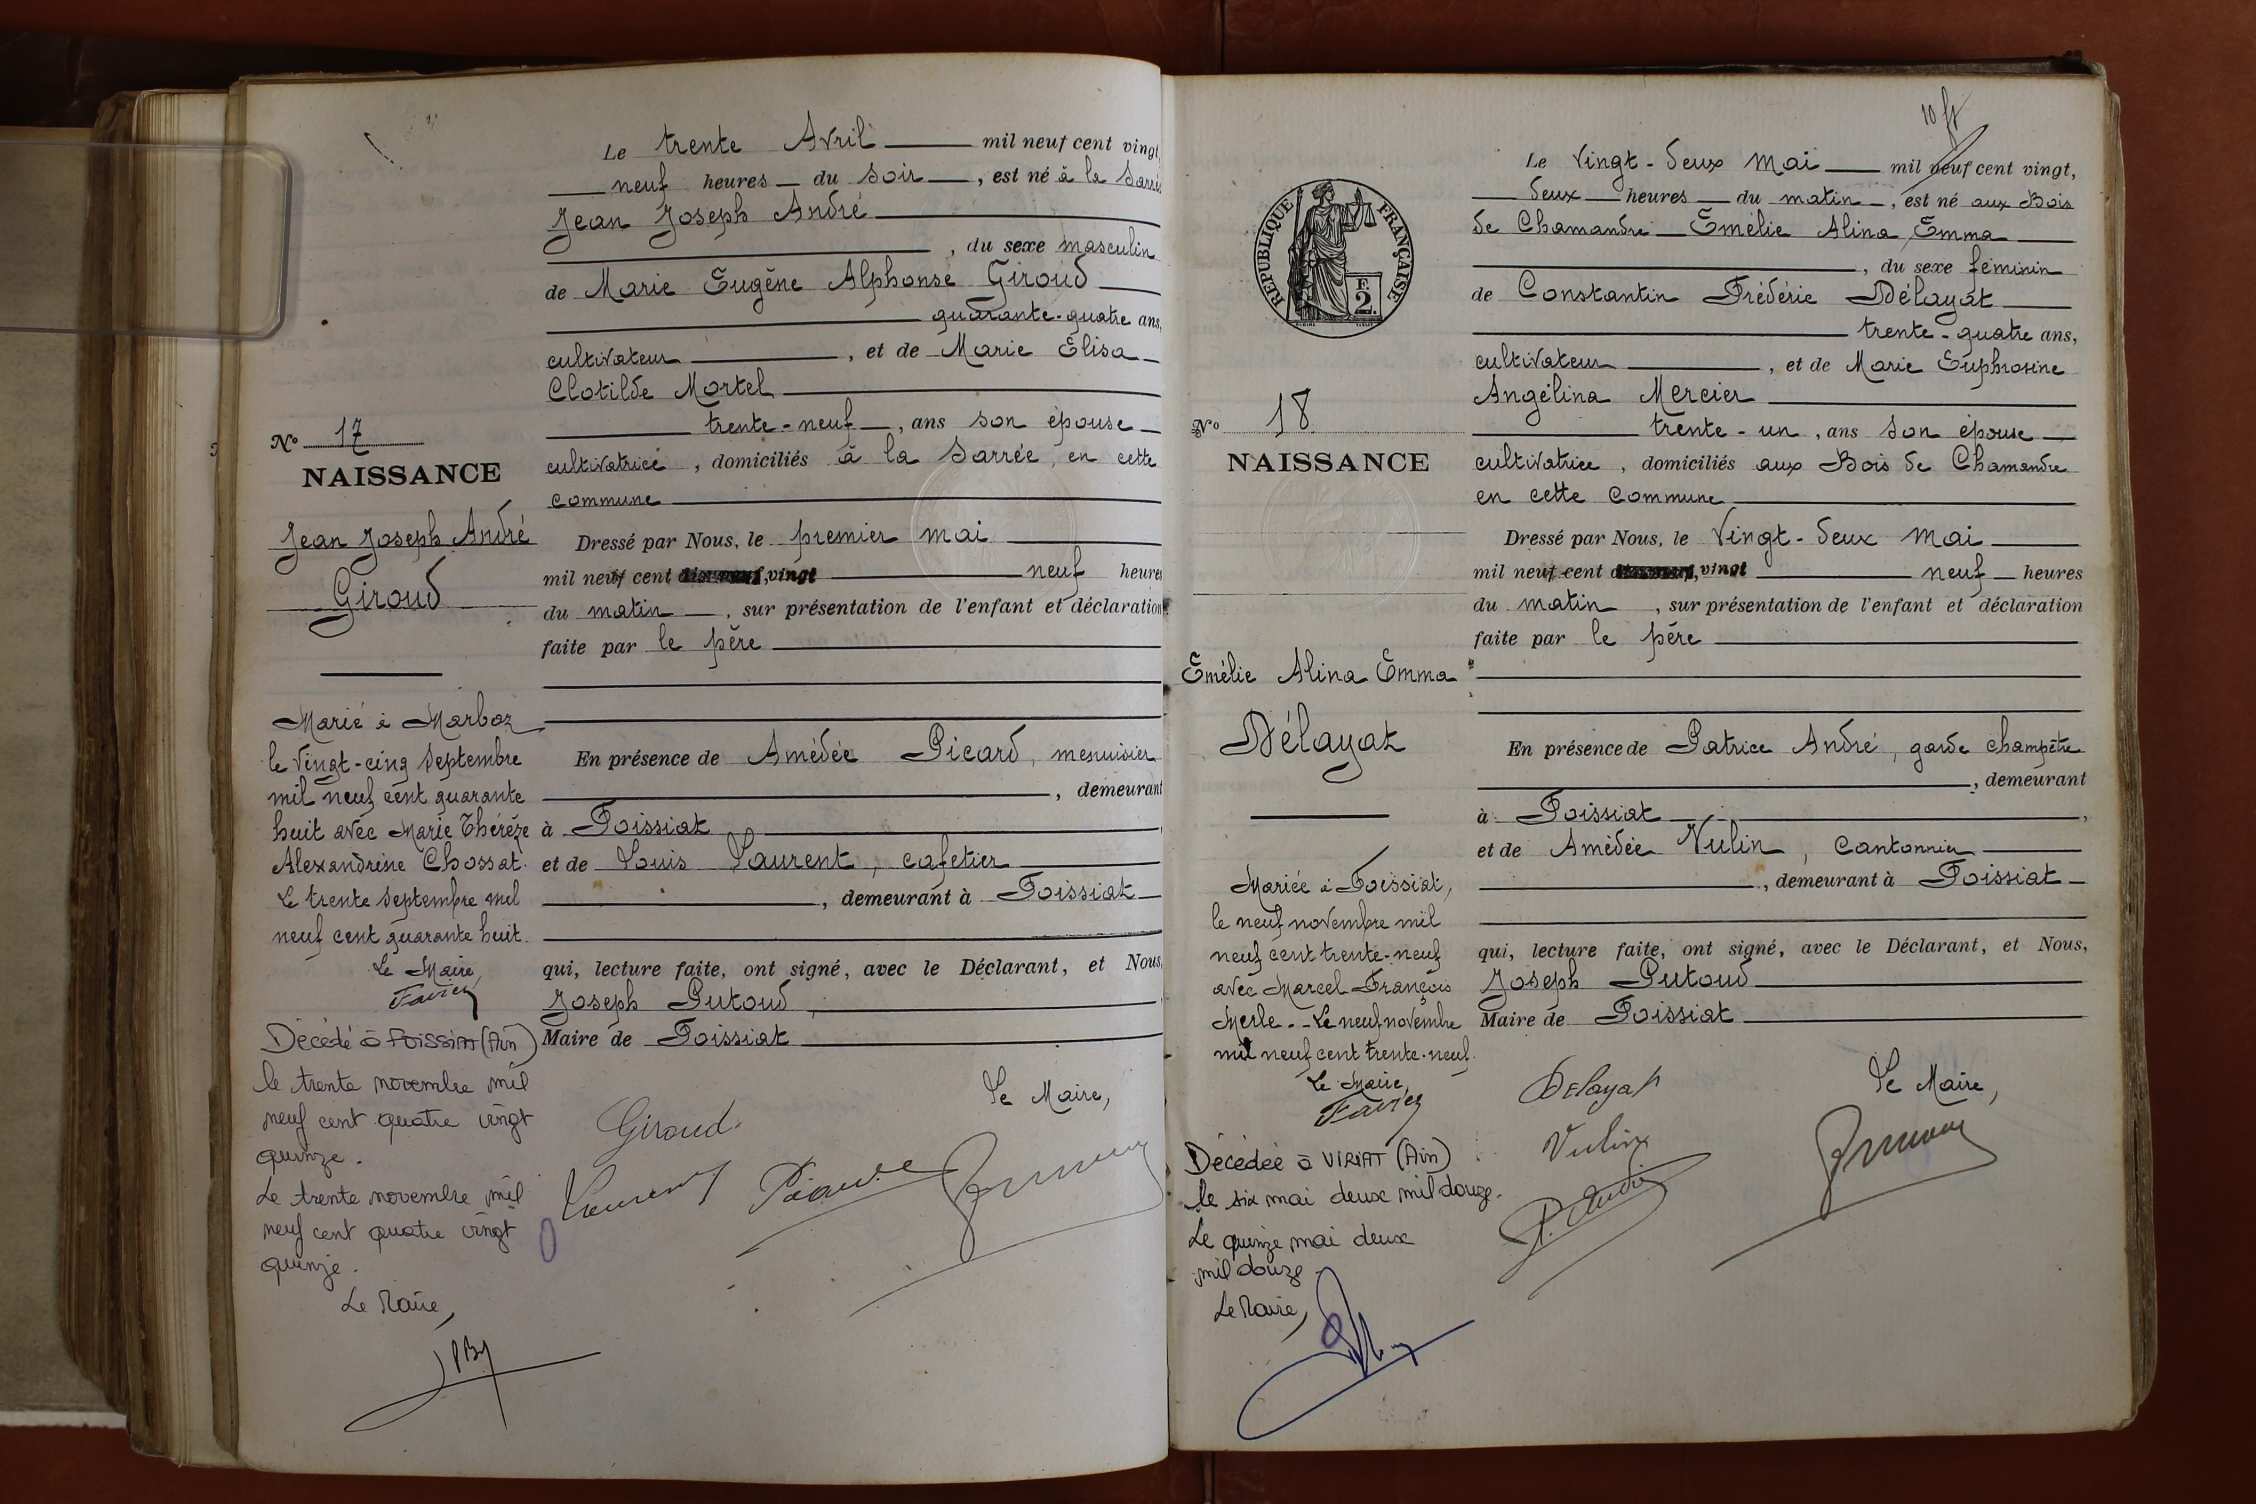 Le trente Avril mil neuf cent vingt,
neuf heures du soir, est né à la Sarrée
Jean Joseph André
, du sexe masculin
de Marie Eugène Alphonse Giroud
quarante-quatre ans,
cultivateur, et de Marie Elisa
Clotilde Mortel
trente-neuf, ans son épouse
cultivatrice, domiciliés à la Sarrée, en cette
commune
No 17
NAISSANCE
Jean Joseph André
Giroud
Dressé par Nous, le premier mai
mil neuf cent vingt neuf heures
du matin, sur présentation de l'enfant et déclaration
faite par le père
En présence de Amédée Picard, menuisier
, demeurant
à Foissiat
et de Louis Laurent, cafetier
, demeurant à Foissiat
qui, lecture faite, ont signé, avec le Déclarant, et Nous,
Joseph Putoud
Maire de Foissiat
Le Maire,
Giroud
Laurent Picard
Marié à Marboz
le vingt-cinq septembre
mil neuf cent quarante
huit avec Marie Thérèze
Alexandrine Chossat.
Le trente septembre mil
neuf cent quarante huit.
Le Maire,
Favier
Décédé à FOISSIAT (Ain)
le trente novembre mil
neuf cent quatre vingt
quinze.
Le trente novembre mil
neuf cent quatre vingt
quinze.
Le Maire,
10 ft
RÉPUBLIQUE FRANÇAISE
F.
2.
Le vingt-deux mai mil neuf cent vingt,
deux heures du matin, est né aux Bois
de Chamandre Emélie Alina Emma
, du sexe féminin
de Constantin Frédéric Délayat
trente-quatre ans,
cultivateur, et de Marie Euphrosine
Angélina Mercier
trente-un, ans son épouse
cultivatrice, domiciliés aux Bois de Chamandre
en cette commune
No 18
NAISSANCE
Emélie Alina Emma
Délayat
Dressé par Nous, le vingt-deux mai
mil neuf cent vingt neuf heures
du matin, sur présentation de l'enfant et déclaration
faite par le père
En présence de Patrice André, garde champêtre
, demeurant
à Foissiat,
et de Amédée Vulin, cantonnier
, demeurant à Foissiat
qui, lecture faite, ont signé, avec le Déclarant, et Nous,
Joseph Putoud
Maire de Foissiat
Le Maire,
Delayat
Vulin
P. André
Mariée à Foissiat,
le neuf novembre mil
neuf cent trente-neuf
avec Marcel François
Merle. - Le neuf novembre
mil neuf cent trente-neuf.
Le Maire,
Favier
Décédée à VIRIAT (Ain)
le six mai deux mil douze.
Le quinze mai deux
mil douze.
Le Maire,